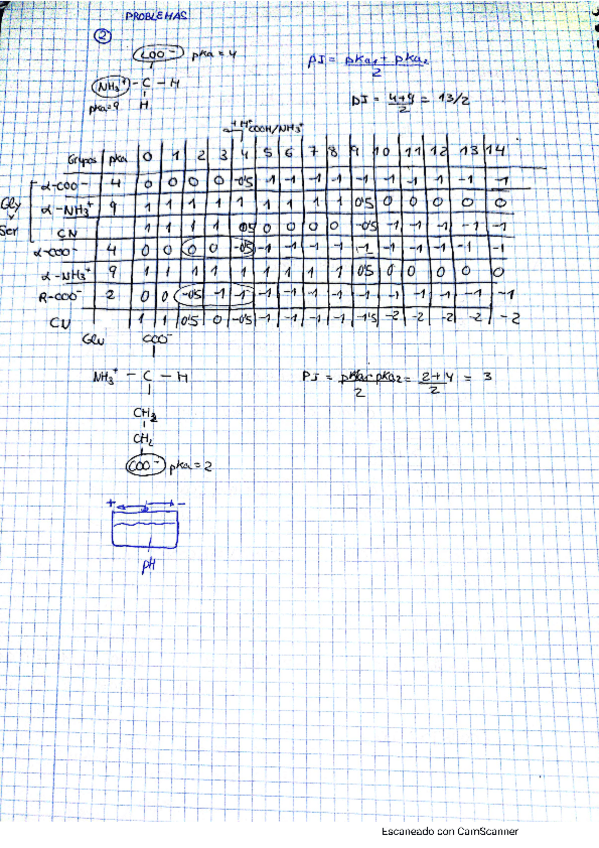 PROBLEMAS
②
COO⁻ pka = 4
PI = pka₁ + pka₂ / 2
NH₃⁺ - C - H
pka=9 H
PI = 4+9 / 2 = 13/2
+H⁺ COOH/NH₃⁺
Grupos pka 0 1 2 3 4 5 6 7 8 9 10 11 12 13 14
α-COO⁻ 4 0 0 0 0 -0'5 -1 -1 -1 -1 -1 -1 -1 -1 -1 -1
Gly y Ser
α-NH₃⁺ 9 1 1 1 1 1 1 1 1 1 0'5 0 0 0 0 0
CN 1 1 1 1 0'5 0 0 0 0 -0'5 -1 -1 -1 -1 -1
α-COO⁻ 4 0 0 0 0 -0'5 -1 -1 -1 -1 -1 -1 -1 -1 -1 -1
α-NH₃⁺ 9 1 1 1 1 1 1 1 1 1 0'5 0 0 0 0 0
R-COO⁻ 2 0 0 -0'5 -1 -1 -1 -1 -1 -1 -1 -1 -1 -1 -1 -1
CN 1 1 0'5 0 -0'5 -1 -1 -1 -1 -1'5 -2 -2 -2 -2 -2
Glu COO⁻
NH₃⁺ - C - H
PI = pka₁ + pka₂ / 2 = 2+4 / 2 = 3
CH₂
CH₂
COO⁻ pka = 2
+ -
pH
Escaneado con CamScanner